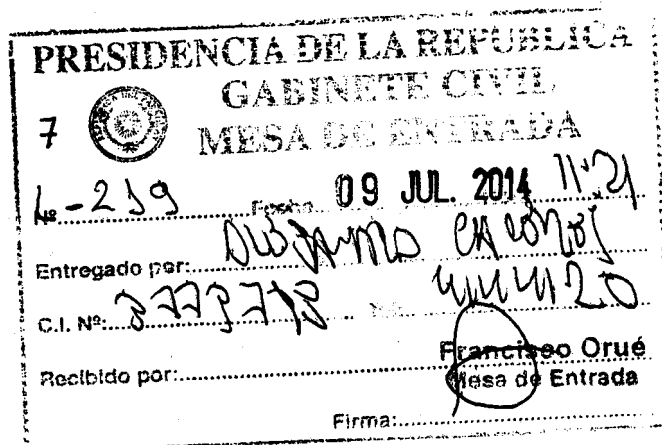 PRESIDENCIA DE LA REPUBLICA
GABINETE CIVIL
7 MESA DE ENTRADA
Nº L-219 Fecha 09 JUL. 2014 11:21
Entregado por:
C.I. Nº: 3773718 Tel. 414120
Francisco Orué
Recibido por: Mesa de Entrada
Firma: